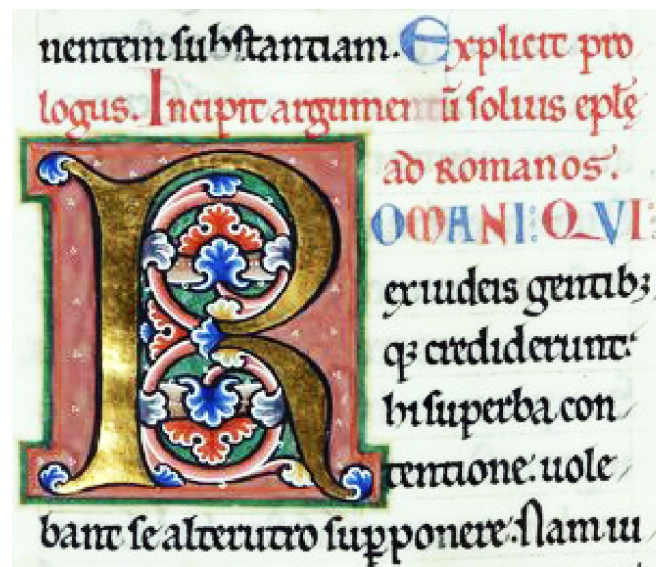 nentem substantiam. Explicit pro
logus. Incipit argumentū solius eplę
ad Romanos.
ROMANI: QVI:
ex iudeis gentibꝫ
qꝫ crediderunt:
hi superba con
tentione: uole
bant se alterutro suꝑponere: Nam iu